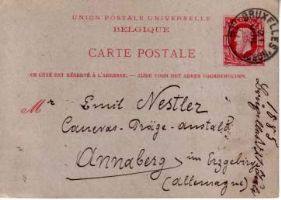 UNION POSTALE UNIVERSELLE
BELGIQUE
CARTE POSTALE
CE CÔTÉ EST RÉSERVÉ À L'ADRESSE. — ZIJDE VOOR HET ADRES VOORBEHOUDEN.
BRUXELLES
Mr Emil Nestler
Präge-Anstalt
Annaberg im Erzgebirg
(Allemagne)
1885